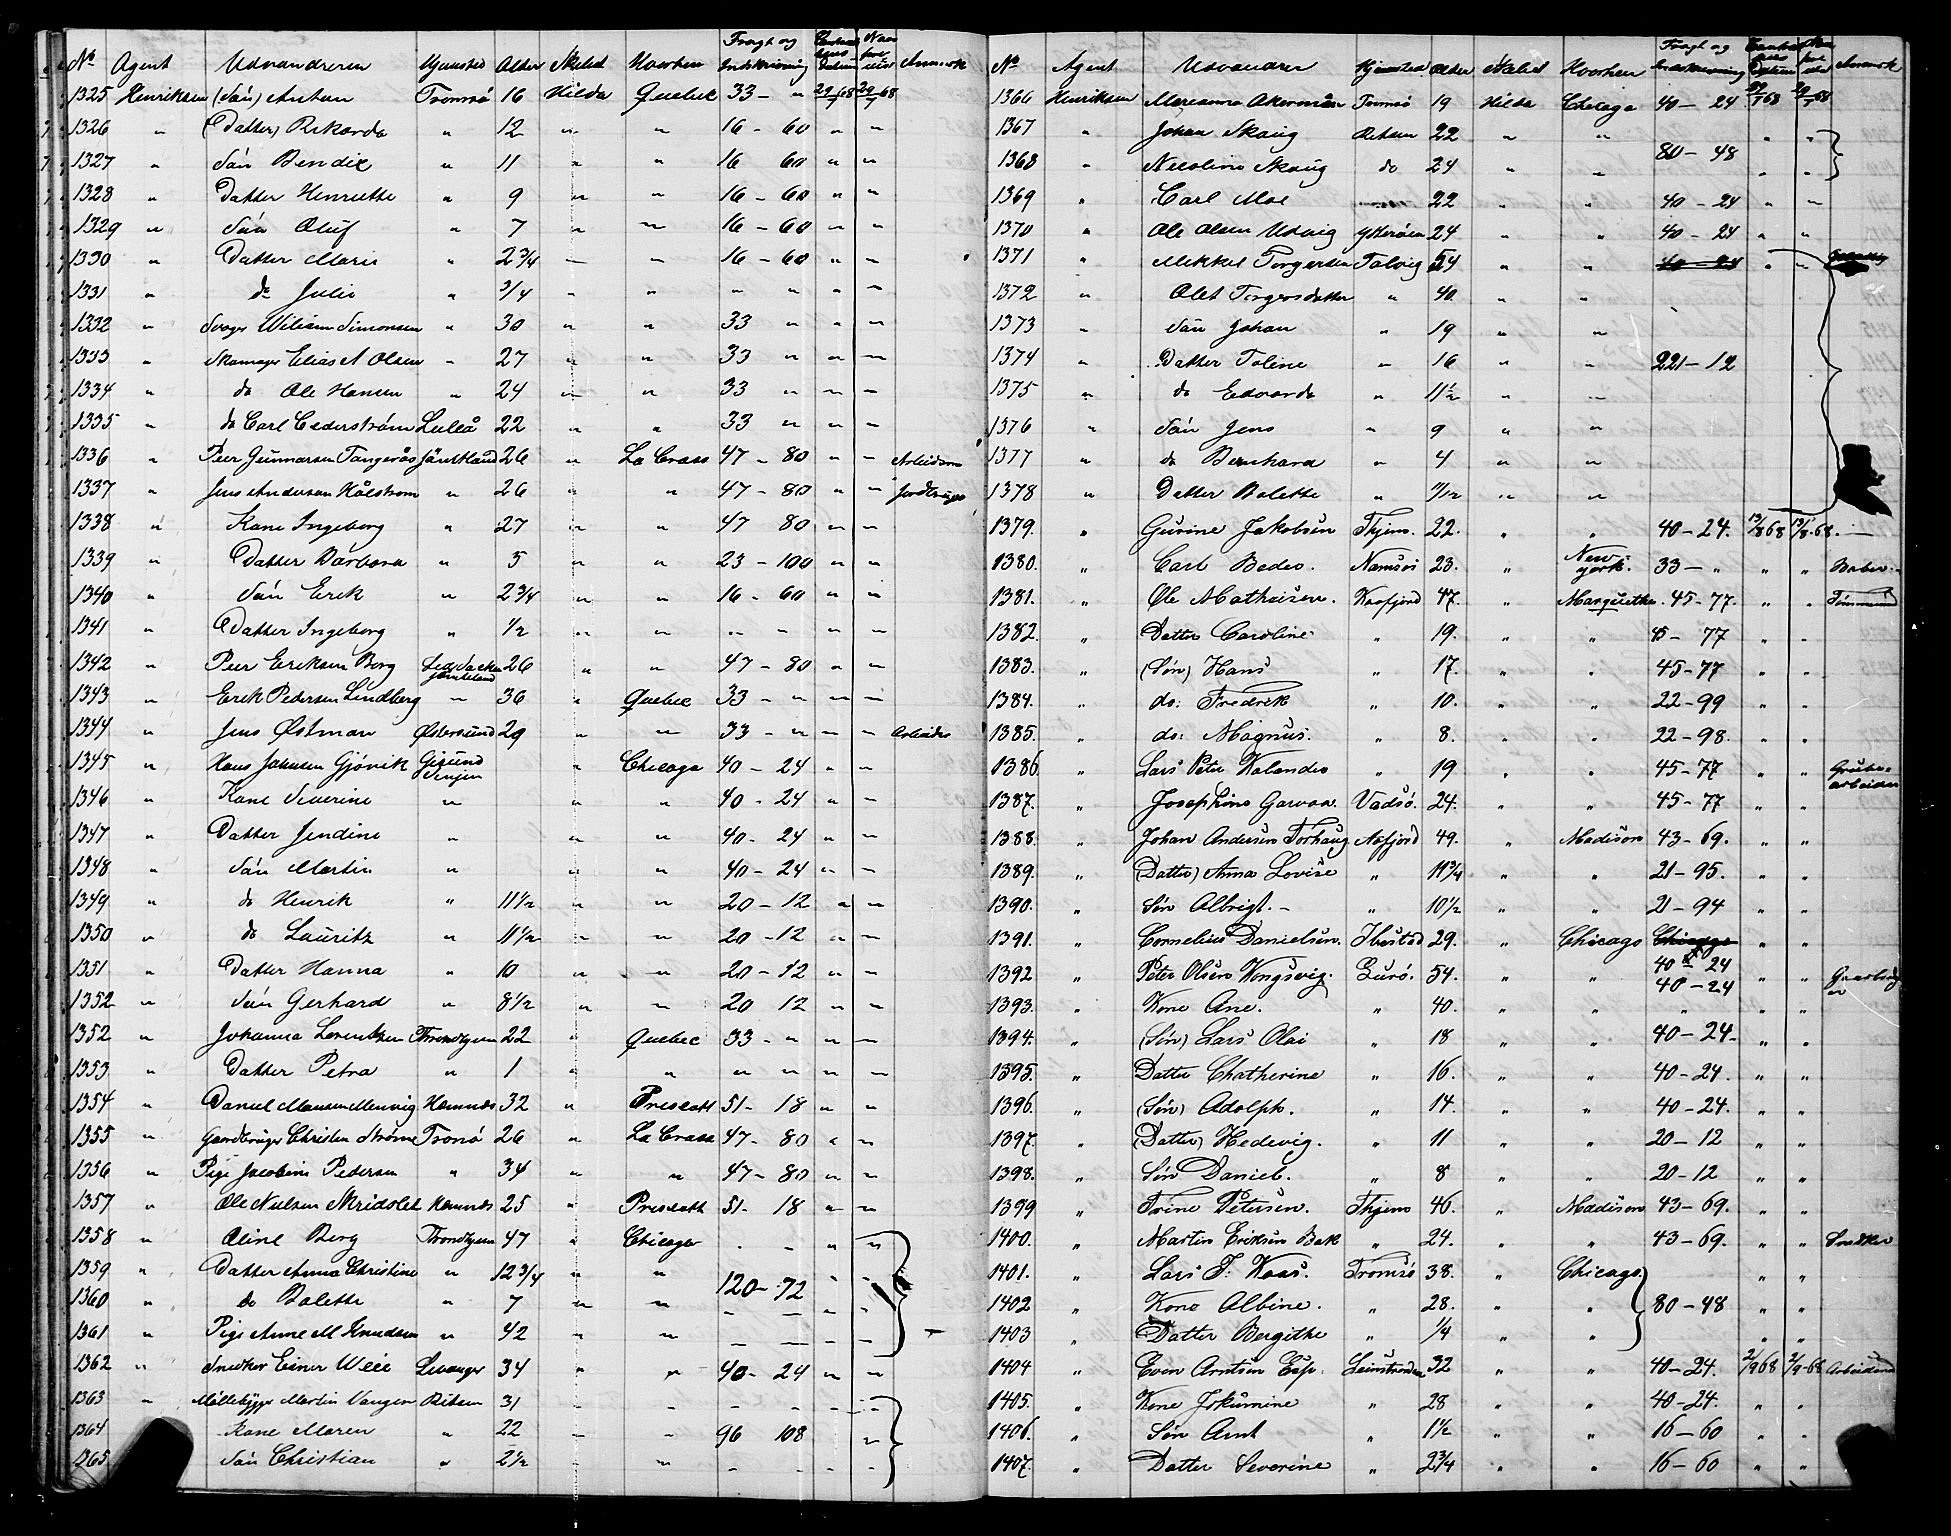 No Agent Udvandreren Hjemsted Alder Skibet Hvorhen Fragt og Indskrivning Anmærk
1325 Henriksen (Sön) Anton Tromsö 16 Hilda Quebec 33 - " 29/7 68 29/7 68
1326 " (Datter) Rikarda " 12 " " 16 - 60 " "
1327 " Sön Bendix " 11 " " 16 60 " "
1328 " Datter Henriette " 9 " " 16 - 60 " "
1329 " Sön Oluf " 7 " " 16 - 60 " "
1330 " Datter Marie " 2 3/4 " " 16 - 60 " "
1331 " do Julie " 3/4 " " " " " "
1332 " Svoger Wiliam Simonsen " 30 " " 33 " " "
1333 " Skomager Elias A Olsen " 27 " " 33 " " "
1334 " do Ole Hansen " 24 " " 33 " " "
1335 " do Carl Cederström Luleå 22 " " 33 " " "
1336 " Peer Gunnarsen Tangerås Jämtland 26 " La Cross 47 - 80 " "
1337 " Jens Andersen Kålstrom " 26 " " 47 - 80 " " Jordbruger
1338 " Kone Ingeborg " 27 " " 47 80 " "
1339 " Datter Barbara " 5 " " 23 - 100 " "
1340 " Sön Erik " 2 3/4 " " 16 - 60 " "
1341 " Datter Ingeborg " 1/2 " " " " " "
1342 " Peer Eriksen Borg Jämteland 26 " " 47 - 80 " "
1343 " Erik Pedersen Lindberg " 36 " Quebec 33 - " " "
1344 " Jens Østman Østersund 29 " " 33 - " " " Arbeider
1345 " Hans Johansen Gjövik Gisund Senjen " Chicago 40 - 24 " "
1346 " Kone Severine " " " 40 - 24 " "
1347 " Datter Jendine " " " 40 - 24 " "
1348 " Sön Martin " " " 40 - 24 " "
1349 " do Henrik " 11 1/2 " " 20 - 12 " "
1350 " do Lauritz " 11 1/2 " " 20 - 12 " "
1351 " Datter Hanna " 10 " " 20 - 12 " "
1352 " Sön Gerhard " 8 1/2 " " 20 12 " "
1352 " Johanna Lorentzen Trondhjem 22 " Quebec 33 - " " "
1353 " Datter Petra " 1 " " " " " "
1354 " Daniel Monsen Menvig Hemnæs 32 " Prescott 51 - 18 " "
1355 " Gaardbruger Christen Strömme Tronö 26 " La Cross 47 - 80 " "
1356 " Pige Jacobine Pedersen " 34 " " 47 - 80 " "
1357 " Ole Nielsen Skridolet Hemnæs 25 " Prescott 51 - 18 " "
1358 " Oline Berg Trondhjem 47 " Chicago " " " "
1359 " Datter Anna Christine " 12 3/4 " " 120 - 72 " "
1360 " do Bolette " 7 " " " " " "
1361 " Pige Anne M Knudsen " 42 " " " " " "
1362 " Snedker Einer Weie Levanger 34 " " 40 - 24 " "
1363 " Möllebygger Martin Vangen Ritsem 31 " " " " " "
1364 " Kone Maren " 22 " " 96 108 "
1365 " Sön Christian " 2 1/2 " " " " " "
No Agent Udvandrer Hjemsted Alder Skibet Hvorhen Fragt og Indskrivning Anmærk
1366 Henriksen Marianna Akermann Tromsö 19 Hilda Chicago 40 - 24 29/7 68 29/7 68
1367 " Johan Skaug 22 " " " "
1368 " Nicoline Skaug do 24 " " 80 - 48 " "
1369 " Carl Moe 22 " " 40 - 24 " "
1370 " Ole Olsen Udvig Ytterøen 24 " " 40 - 24 " "
1371 " Mikkel Torgersen Talvig 54 " " 40 - 24 " "
1372 " Olet Torgersdatter " 40 " "
1373 " Sön Johan " 19 " "
1374 " Datter Toline " 16 " " 221 - 12
1375 " do Edvarda " 11 1/2 " "
1376 " Sön Jens " 9 " "
1377 " do Bernhard " 4 " "
1378 " Datter Bolette " 11/12 " "
1379. " Gurine Jakobsen Thjem. 22. " " 40 - 24. 13/8 68 13/8. 68. -
1380. " Carl Beder. Namsos 23. " New york. 33 - " " "
1381. " Ole Mathisen. Kaafjord 47. " Marquette. 45 - 77. " "
1382. " Datter Caroline " 19. " " 45 - 77 " "
1383. " (Søn) Hans " 17. " " 45 - 77 " "
1384. " do: Fredrik " 10. " " 22 - 99 " "
1385. " do: Magnus. " 8. " " 22 - 98. " "
1386. " Lars Peter Kalander " 19 " " 45 - 77 " " Grubearbeider
1387. " Josephine Garvaa. Vadsö. 24. " " 45 - 77 " "
1388. " Johan Andersen Torhaug Aafjord 49. " Madison 43 - 69. " "
1389. " (Datter) Anna Lovise " 11 3/4 " " 21 - 95. " "
1390. " Søn Albrigt. - " 10 1/2 " " 21 - 94 " "
1391. " Cornelius Danielsen. Ibestad 29. " Chicago Chicago 40 - 24 " "
1392 " Peter Olsen Kongsvig. Gurö. 54. " " 40 - 24 " "
1393. " Kone Ane. " 40. " " " " "
1394. " (Søn) Lars Olai " 18 " " 40 - 24 - " "
1395. " Datter Chatherine " 16. " " 40 - 24. " "
1396. " (Søn) Adolph. " 14. " " 40 - 24. " "
1397. " (Datter) Hedevig. " 11 " " 20 - 12 " "
1398. " Søn Daniel. " 8 " " 20 - 12 " "
1399 " Trine Petersen. Thjem 46. " Madison 43 - 69. " "
1400. " Martin Eriksen Bak " 24. " " 43 - 69. " " Snedker
1401. " Lars J. Kaas. Tromsö 38. " Chicago " "
1402 " Kone Albine. " 28. " " 80 - 48 " "
1403 " Datter Bergithe " 1/4 " " " "
1404 " Even Arntsen Esp. Leinstranden 32 " " 40 - 24. 2/9 68 2/9 - 68 Arbeidsmd
1405. " Kone Jokumine " 28 " " 40 - 24. " "
1406. " Søn Arnt " 1 1/2 " " 16 - 60 " "
1407. " Datter Severine " 2 3/4 " " 16 - 60 " "